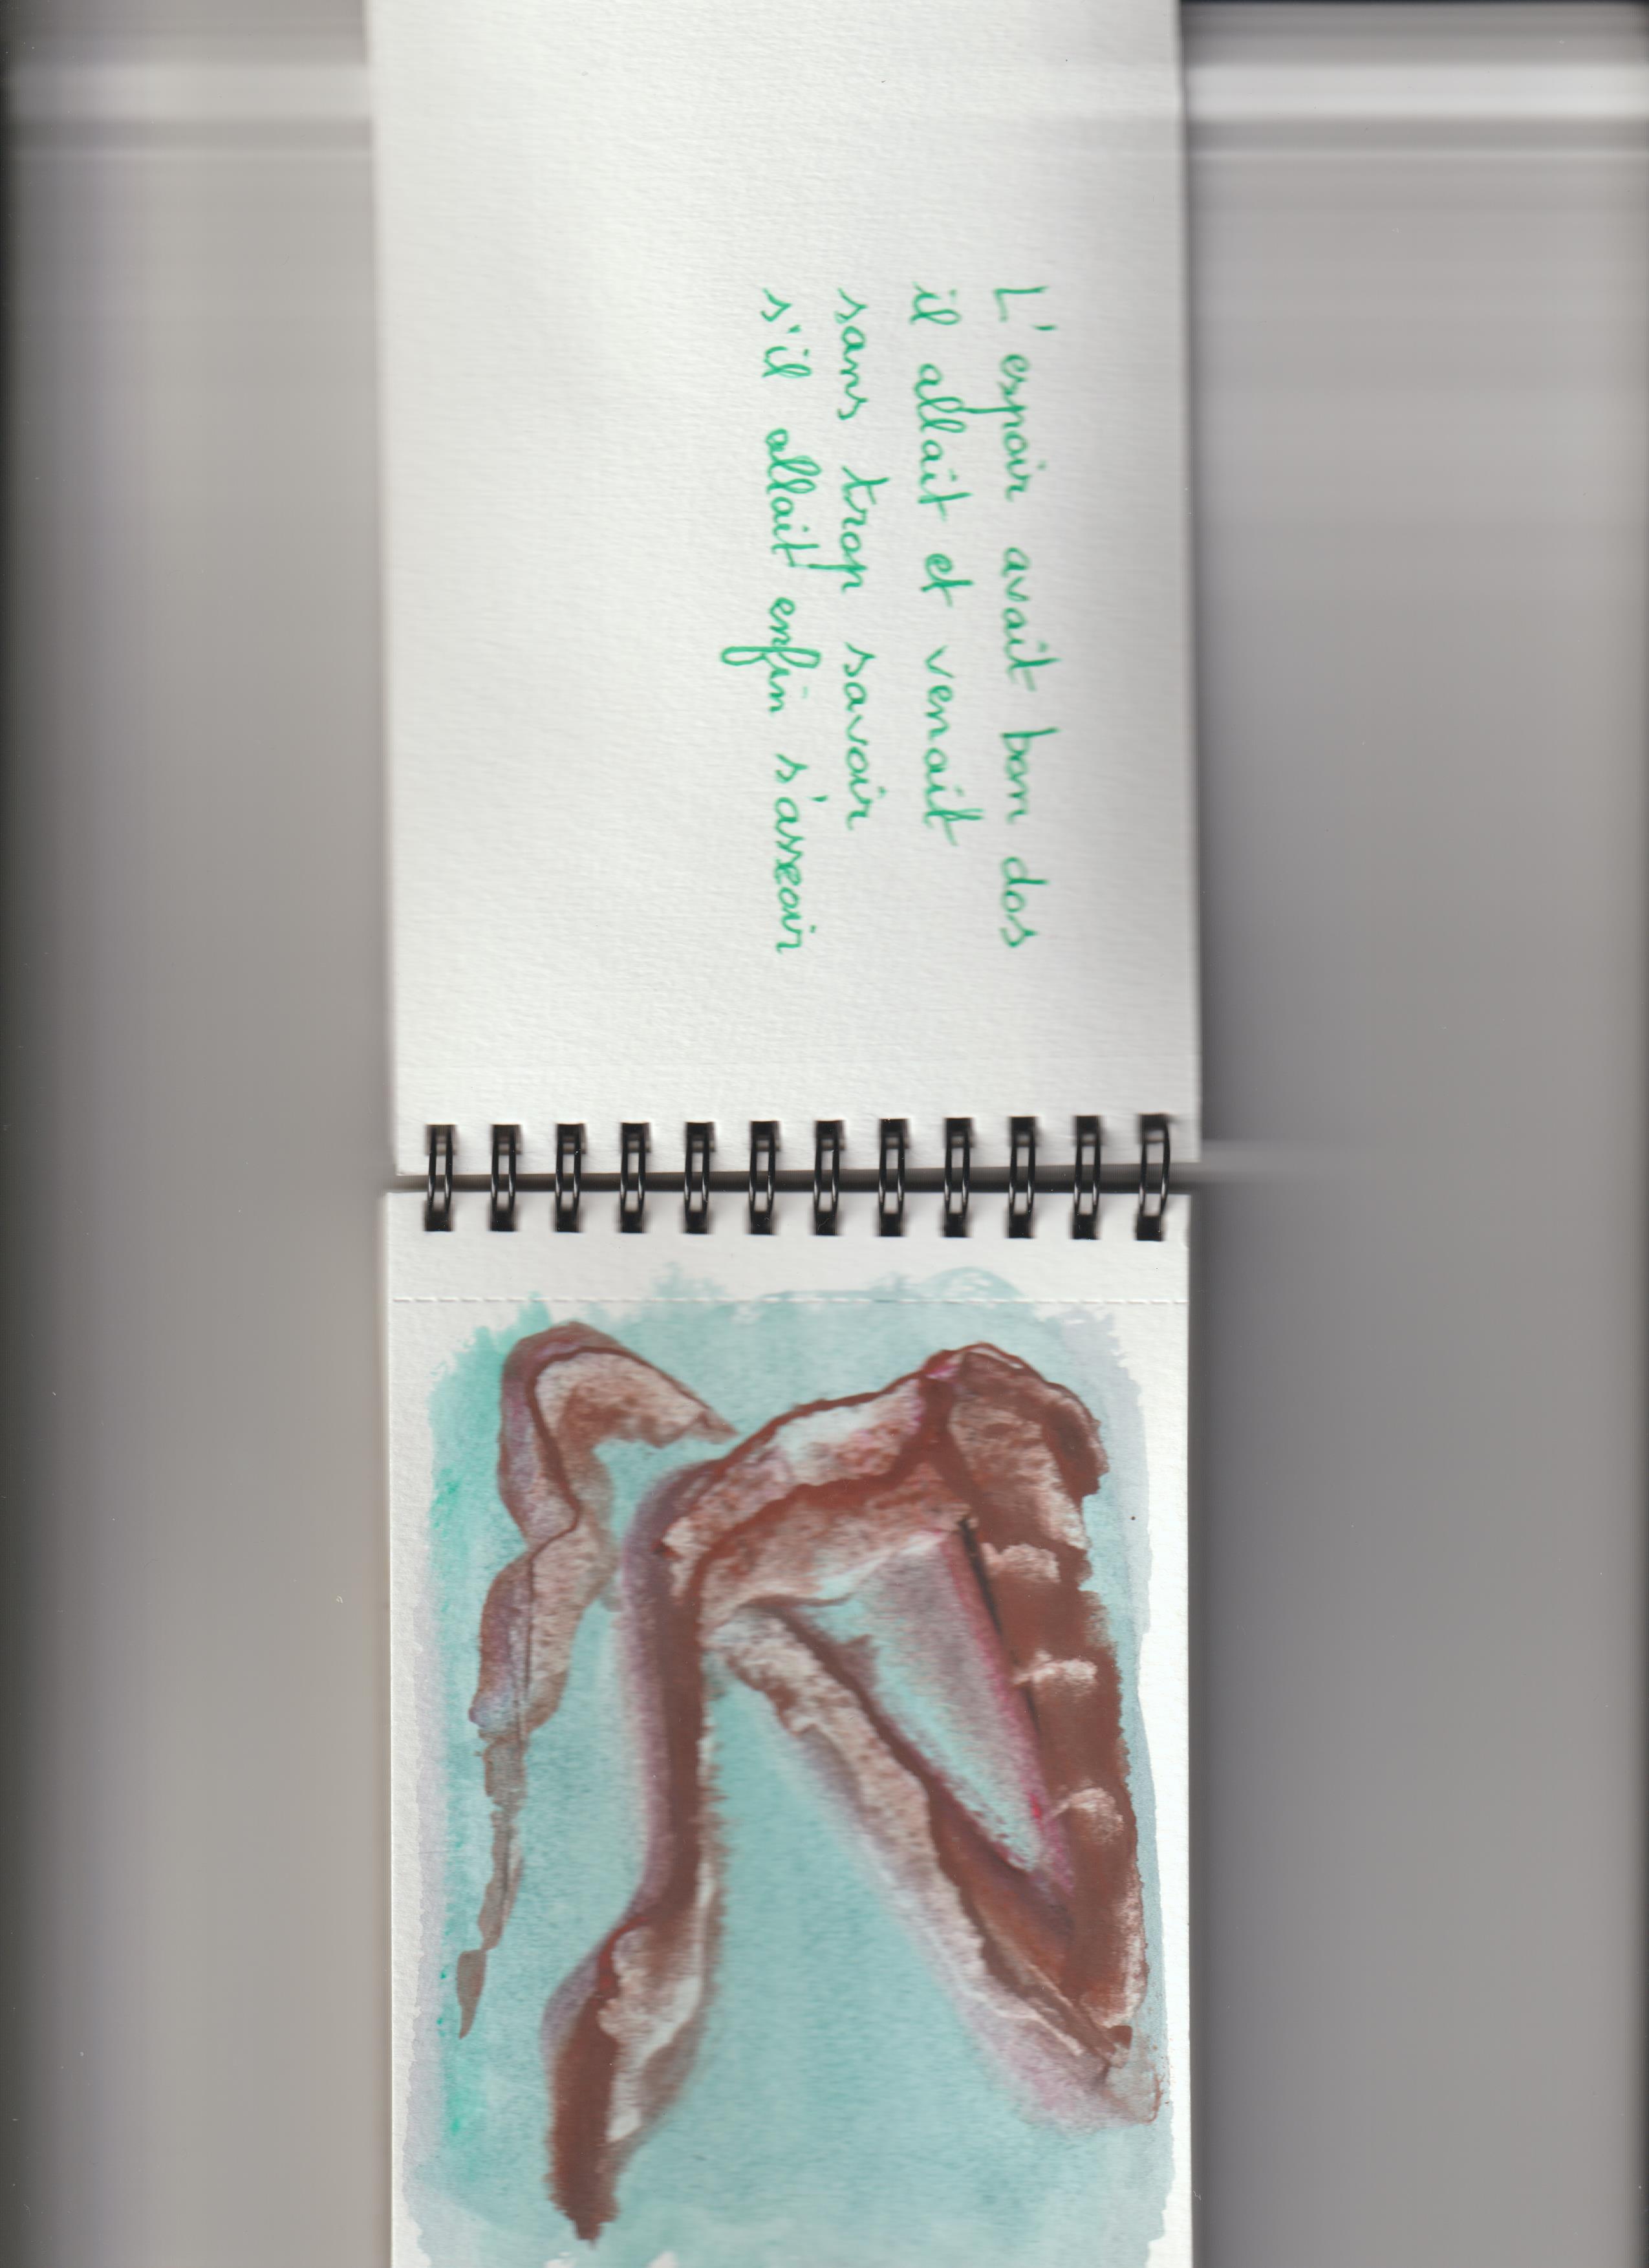 L'espoir avait bon dos
il allait et venait
sans trop savoir
s'il allait enfin s'asseoir